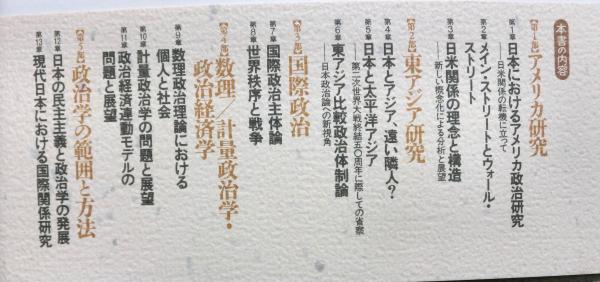 本書の内容
【第1部】アメリカ研究
第1章 日本におけるアメリカ政治研究
――日米関係の転機に立って
第2章 メイン・ストリートとウォール・
ストリート
第3章 日米関係の理念と構造
――新しい概念化による分析と展望
【第2部】東アジア研究
第4章 日本とアジア、遠い隣人?
第5章 日本と太平洋アジア
――第二次世界大戦終結五〇周年に際しての省察
第6章 東アジア比較政治体制論
――日本政治論への新視角
【第3部】国際政治
第7章 国際政治主体論
第8章 世界秩序と戦争
【第4部】数理/計量政治学・
政治経済学
第9章 数理政治理論における
個人と社会
第10章 計量政治学の問題と展望
第11章 政治経済連動モデルの
問題と展望
【第5部】政治学の範囲と方法
第12章 日本の民主主義と政治学の発展
第13章 現代日本における国際関係研究